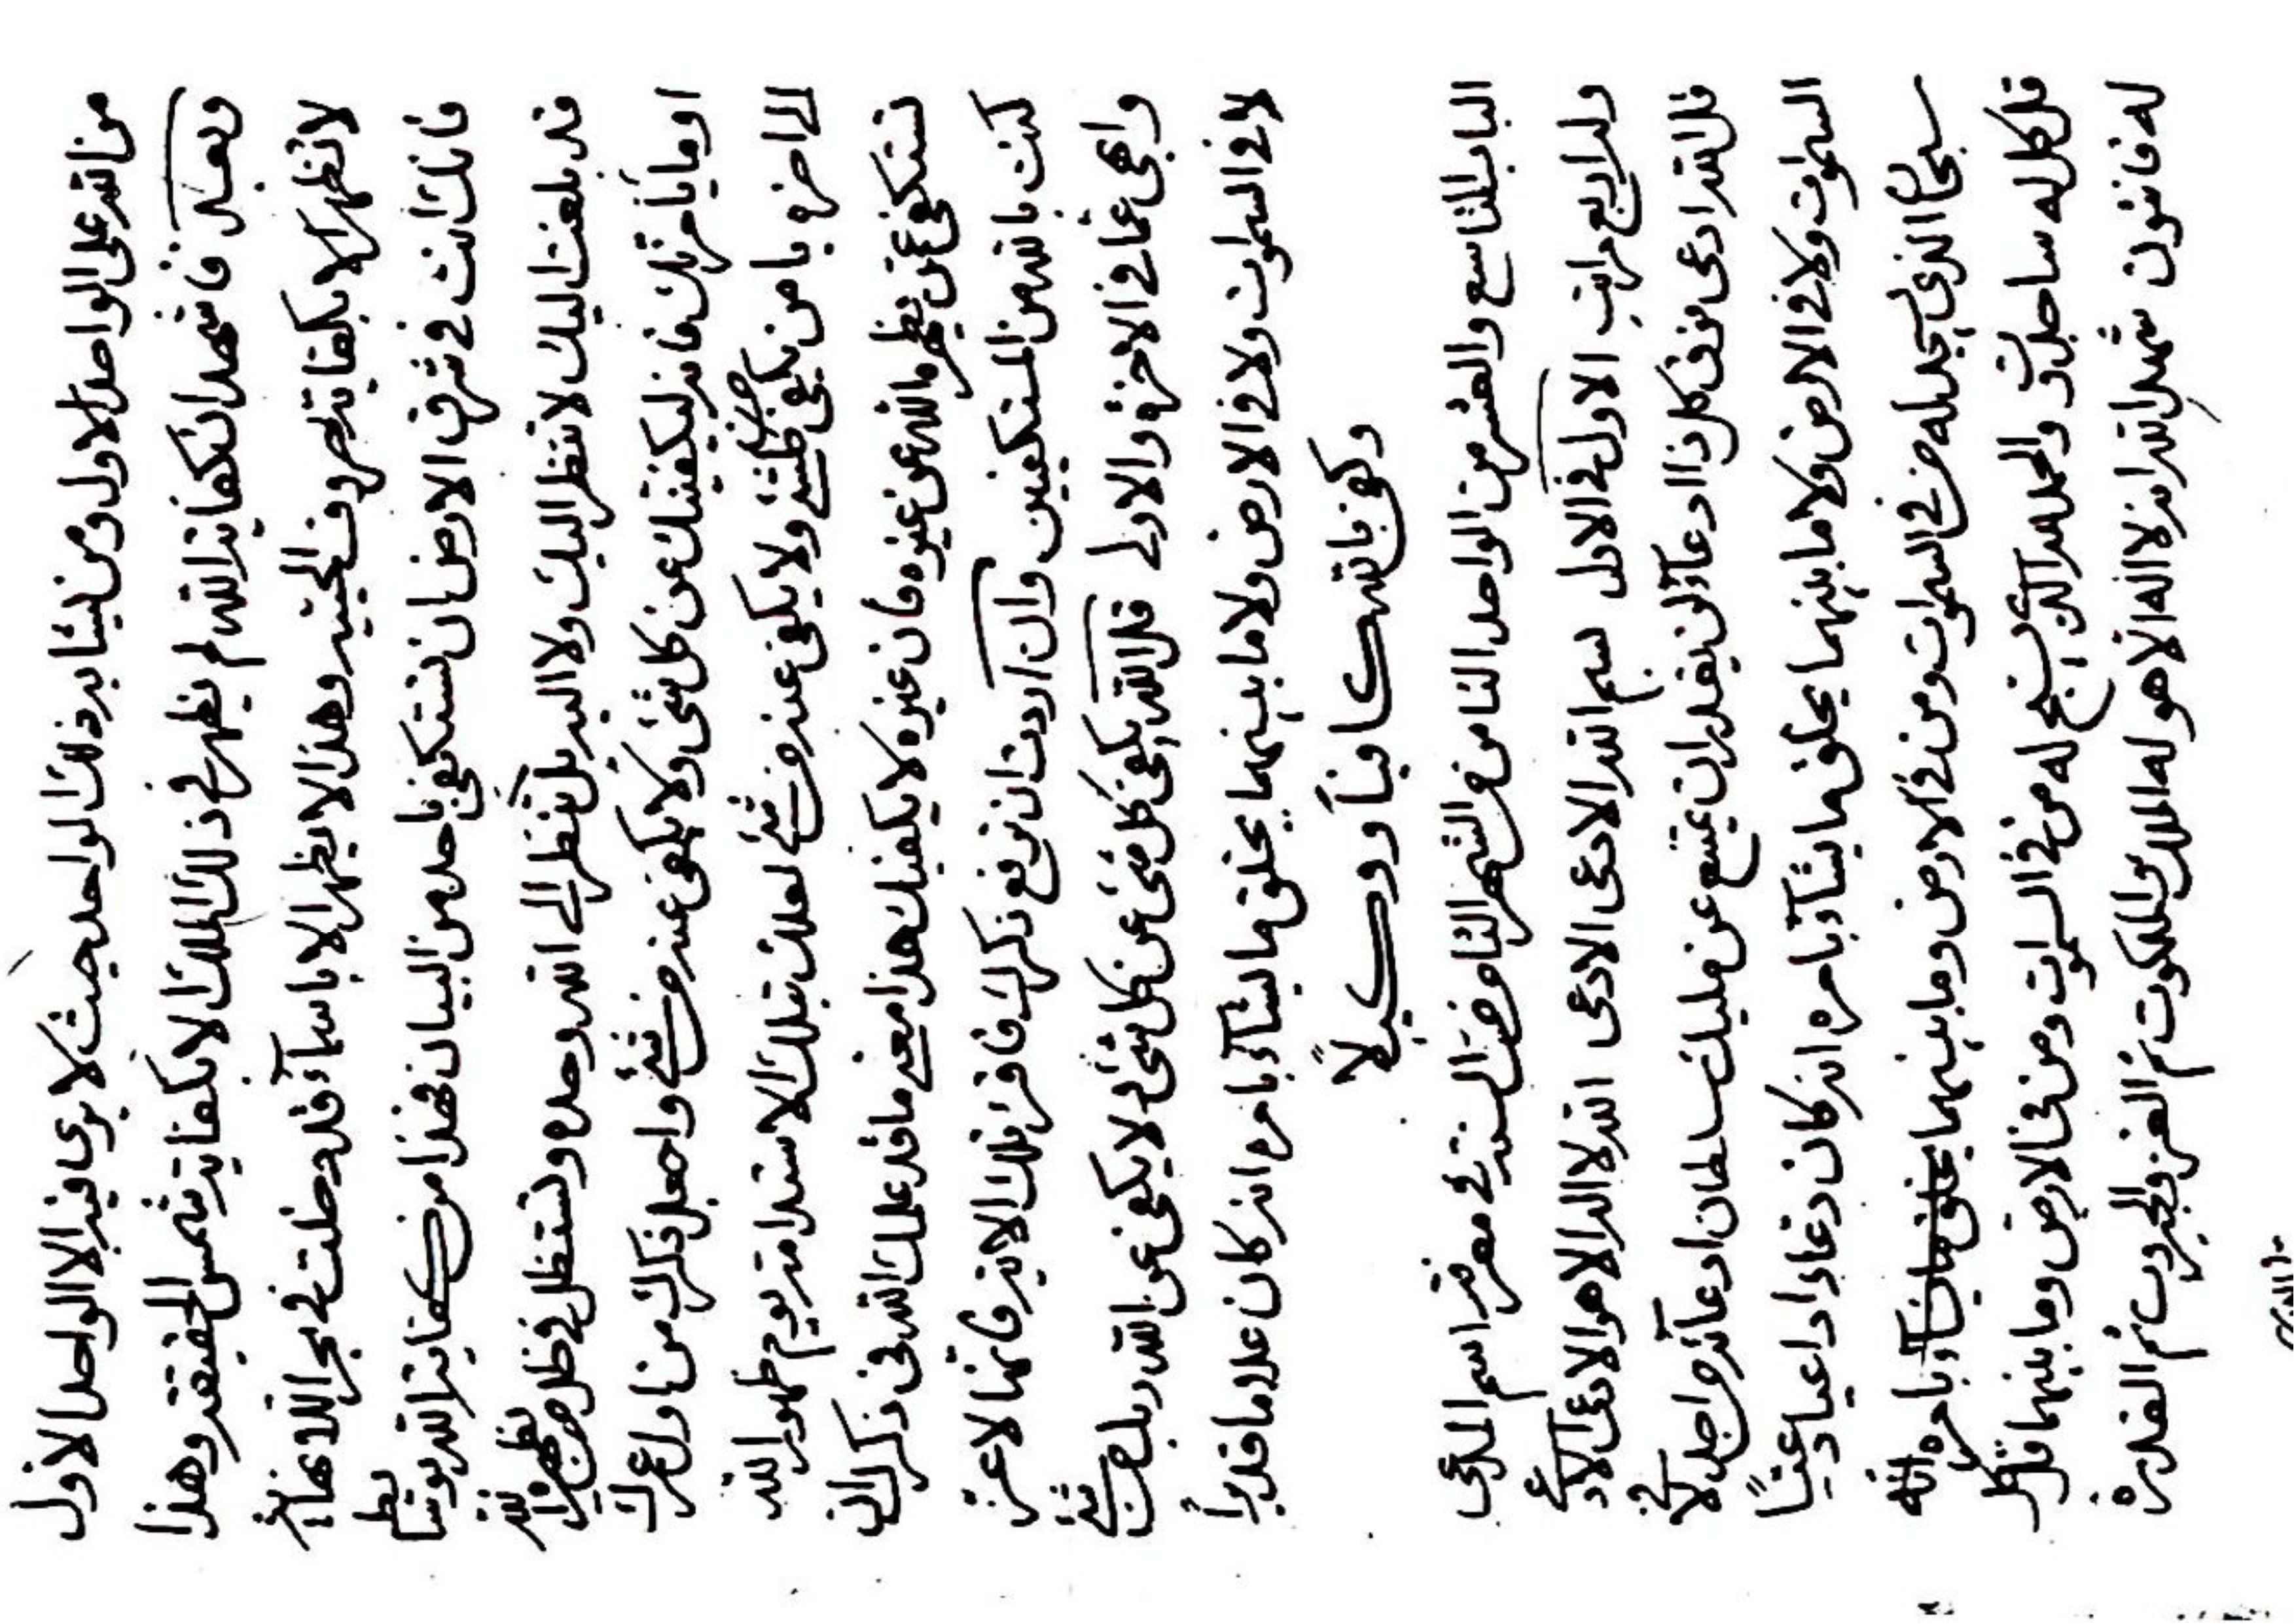 من الله على الواحد الاول ومن يشابه ذلك الواحد حيث لا يرى فيه الا الواحد الاول
وبعد فاشهد ان كفاية الله لم يظهر في ذلك الملك الا بكفاية شمس الحقيقة وهذا
لا تظهر الا بكفاية حروف الحي وهذا لا يظهر الا باسماء قد دخلت في بحر اللانهاية
فانك انت في شرق الارض ان تستكفي باحد من البيان فهذا من كفاية الله
قد بلغت اليك لا تنظر اليك ولا اليه بل تنظر الى الله وحده وتستظل في ظل من يظهره الله
او ما يامرنك فانه ليكفينك عن كل شئ ولا يكفى عنه من شئ واجعل ذكرك من اول عمرك
الى اخره يا من يكفي كل شئ ولا يكفى عنه من شئ لعلك بتلك الاستدامة يوم ظهور الله
تستكفي بمن يظهره الله عن غيره فان غيره لا يكفينك هذا معنى ما قد علمك الله في ذكر الله
كنت بالله من المستكفين وان اردت ان ترفع ذكرك فاقرء تلك الاية فانها لاعز
وابهى عما في الاخرة والاولى قل الله يكفي كل شئ عن كل شئ ولا يكفى عن الله ربك من شئ
لا في السموات ولا في الارض ولا ما بينهما يخلق ما يشاء بامره انه كان علاما قديرا
وكفى بالله كافيا ووكيلا
الباب التاسع والعشر من الواحد الثامن في الشهر الثامن من السنة في معرفة اسم المدعى
وله اربع مراتب الاول في الاول بسم الله الادعى الادعى الله لا اله الا هو الادعى الادعى
قل الله ادعى فوق كل ذا ادعاء لن يقدر ان يمتنع عن مليك سلطان ادعائه من احد لا في
السموات ولا في الارض ولا ما بينهما يخلق ما يشاء بامره انه كان دعاءا داعيا دعيا
سبحان الذي يسجد له من في السموات ومن في الارض وما بينهما بامره انه
قل كل له ساجدون والحمد لله الذي يسبح له من في السموات ومن في الارض وما بينهما قل كل
له قانتون شهد الله انه لا اله الا هو له الملك والملكوت ثم العز والجبروت ثم القدرة